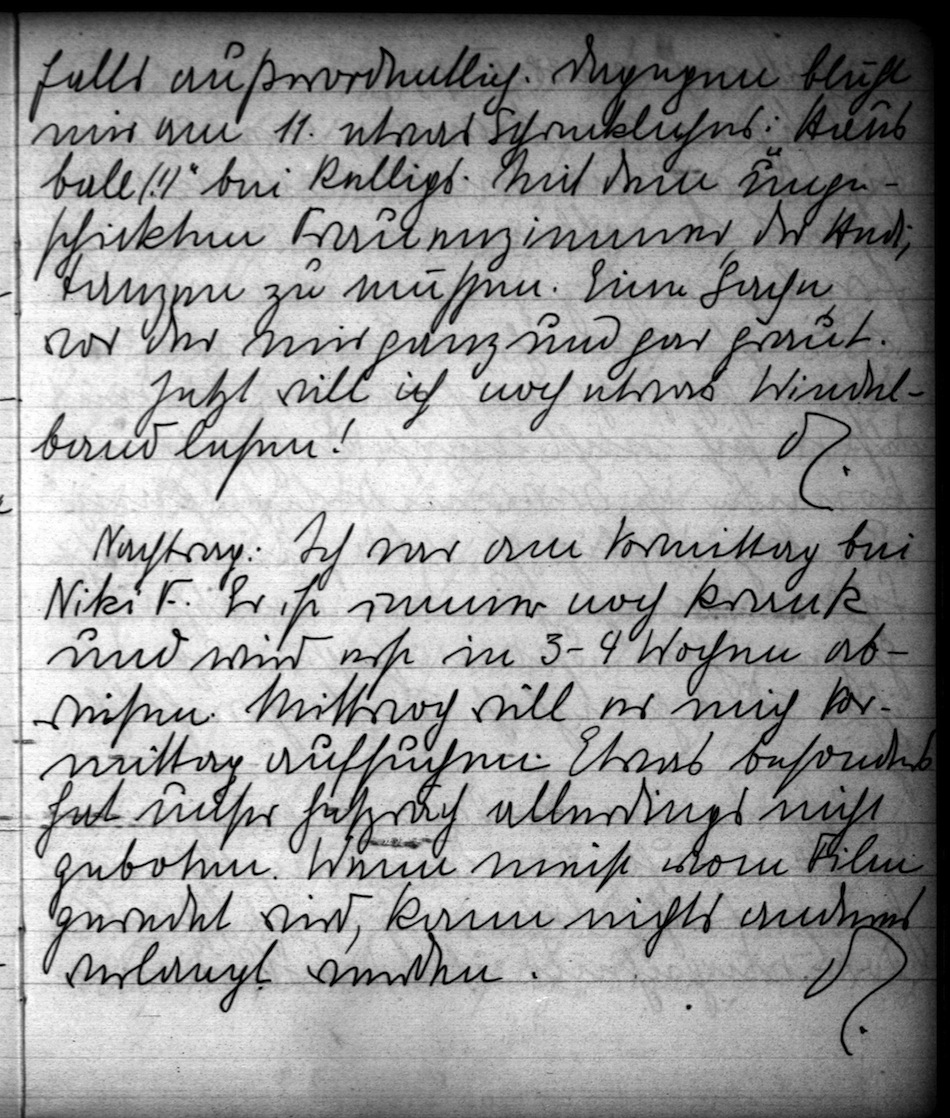 falls außerordentlich. Dagegen blüht
mir am 11. etwas Schreckliches: Haus
ball (!!)" bei Kelligs. Mit dem unge-
schickten Frauenzimmer, der Hedi,
tanzen zu müssen. Eine Sache
vor der mir ganz und gar graut.
Jetzt will ich noch etwas Windel-
band lesen!
Nachtrag: Ich war am Vormittag bei
Niki F. Er ist immer noch krank
und wird erst in 3-4 Wochen ab-
reisen. Mittwoch will er mich Vor-
mittag aufsuchen. Etwas besonders
hat unser Gespräch allerdings nicht
geboten. Wenn meist vom Film
geredet wird, kann nichts anderes
verlangt werden.